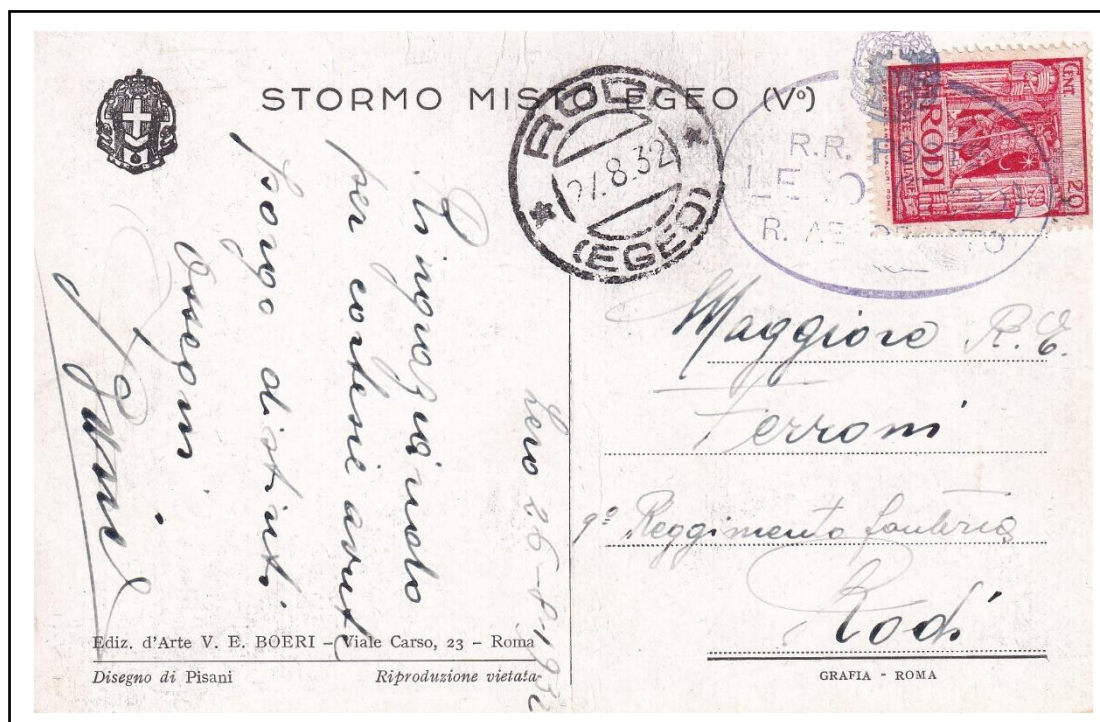 STORMO MISTO EGEO (Vº)
RODI
27.8.32
(EGEO)
R.R. POSTE
R.
CENT 20
RODI
Lero 26-8-1932
Ringraziando
per cortesie avute
porgo distinti
ossequi
Maggiore R. E.
Ferroni
9º Reggimento fanteria
Rodi
Ediz. d'Arte V. E. BOERI – Viale Carso, 23 – Roma
Disegno di Pisani Riproduzione vietata
GRAFIA - ROMA